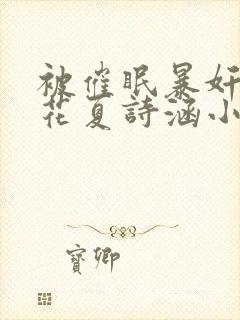 被催眠暴奸
花夏詩涵小
寳卿